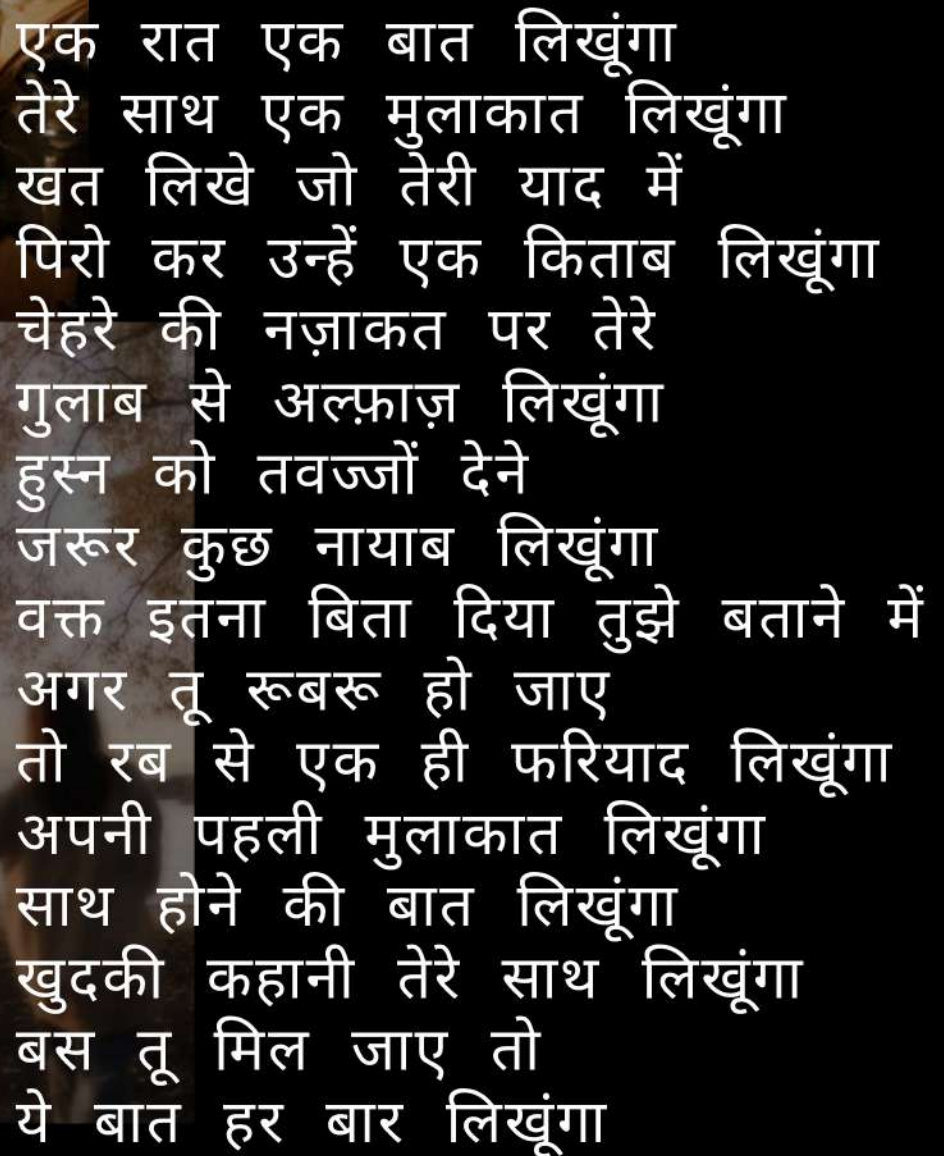 एक रात एक बात लिखूंगा
तेरे साथ एक मुलाकात लिखूंगा
खत लिखे जो तेरी याद में
पिरो कर उन्हें एक किताब लिखूंगा
चेहरे की नज़ाकत पर तेरे
गुलाब से अल्फ़ाज़ लिखूंगा
हुस्न को तवज्जों देने
जरूर कुछ नायाब लिखूंगा
वक्त इतना बिता दिया तुझे बताने में
अगर तू रूबरू हो जाए
तो रब से एक ही फरियाद लिखूंगा
अपनी पहली मुलाकात लिखूंगा
साथ होने की बात लिखूंगा
खुदकी कहानी तेरे साथ लिखूंगा
बस तू मिल जाए तो
ये बात हर बार लिखूंगा